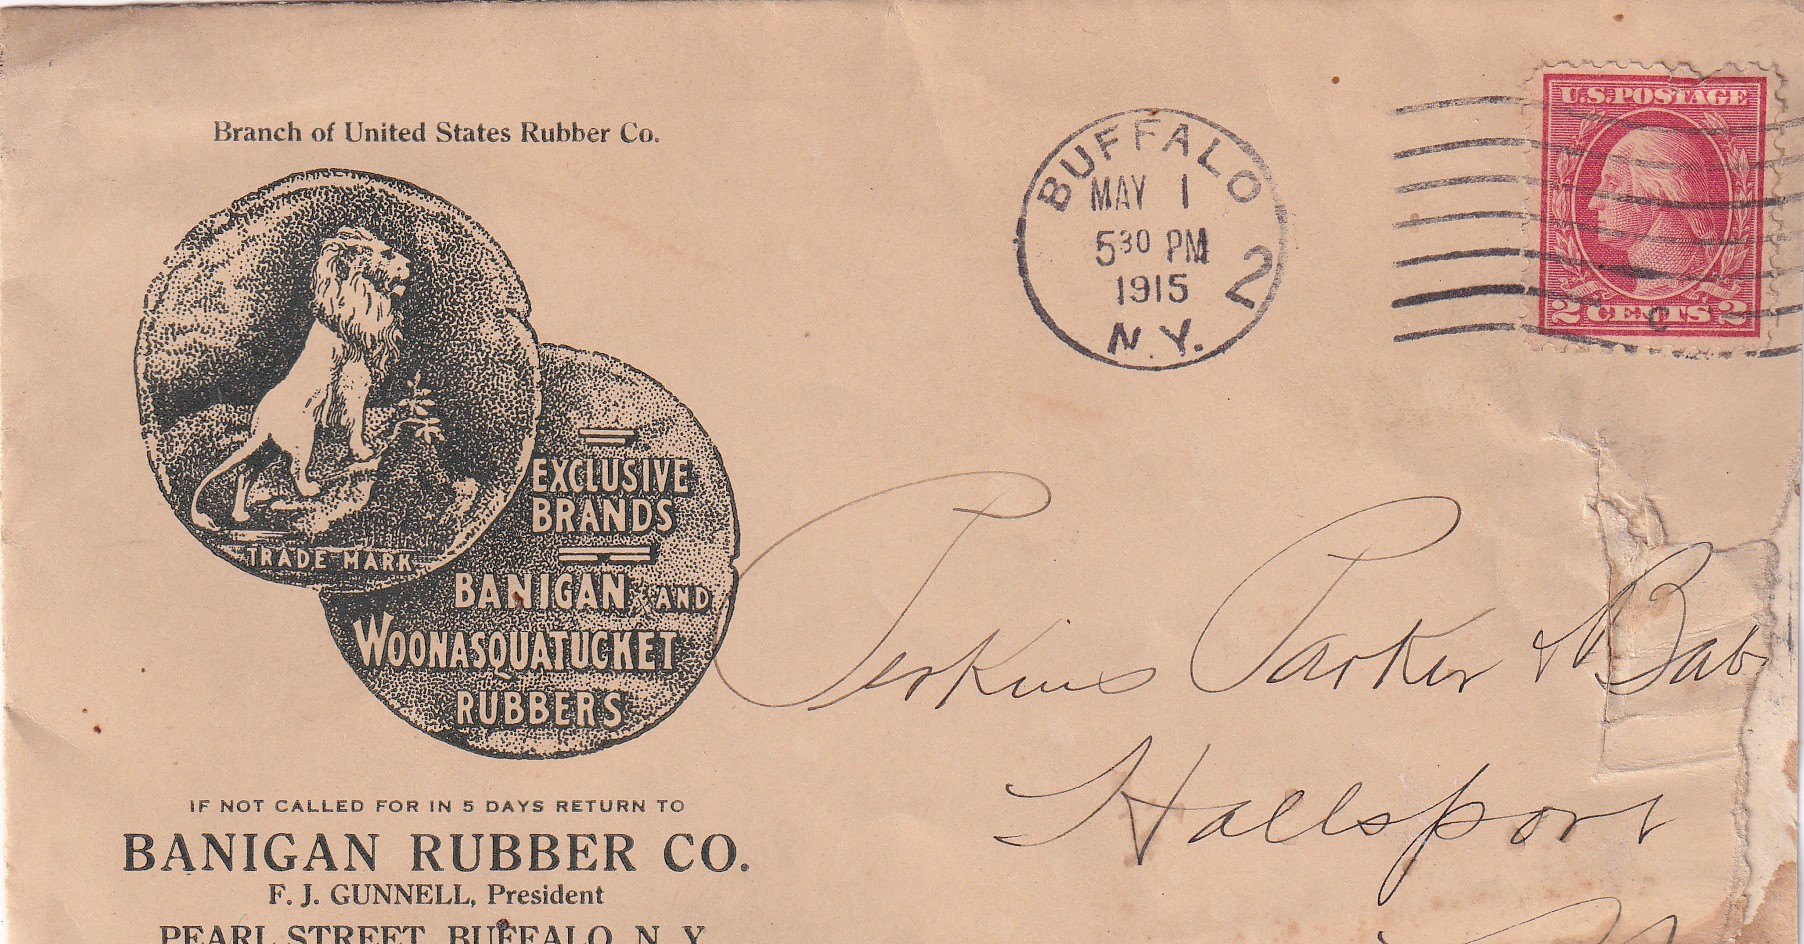 Branch of United States Rubber Co.
TRADE MARK
EXCLUSIVE
BRANDS
BANIGAN AND
WOONASQUATUCKET
RUBBERS
IF NOT CALLED FOR IN 5 DAYS RETURN TO
BANIGAN RUBBER CO.
F. J. GUNNELL, President
PEARL STREET, BUFFALO, N. Y.
BUFFALO
MAY 1
5 30 PM
1915
N.Y.
2
U.S. POSTAGE
2 CENTS 2
C
Perkins Parker & Bab
Hallsport